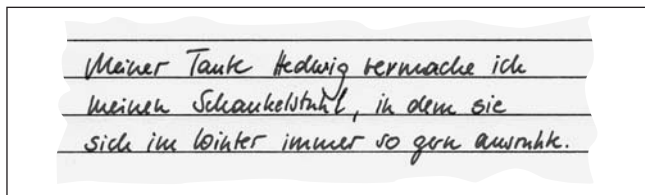 Meiner Tante Hedwig vermache ich
meinen Schaukelstuhl, in dem sie
sich im Winter immer so gern ausruhte.